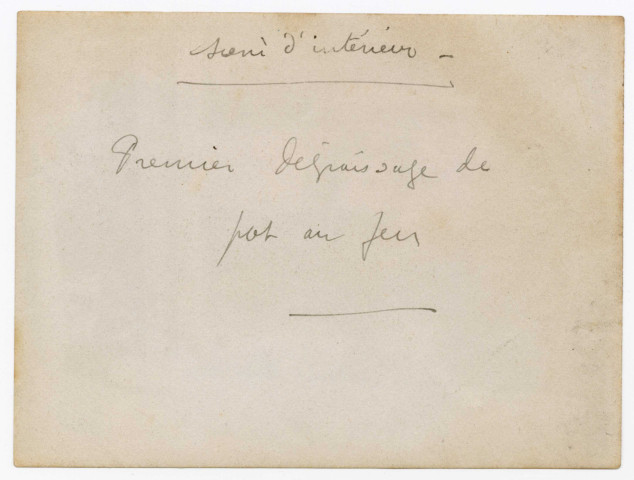 scène d'intérieur -
Premier dégraissage de
pot au feu